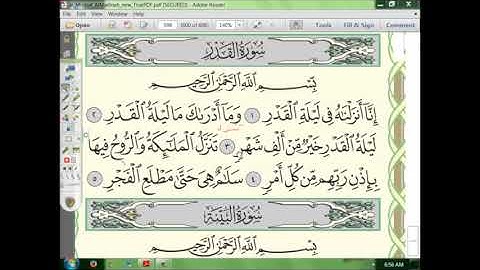 Al_Madinah_new_TrialPDF.pdf [SECURED] - Adobe Reader
Open
598
146%
Tools
Fill & Sign
Comment
سُورَةُ القَدْرِ
بِسْمِ اللَّهِ الرَّحْمَٰنِ الرَّحِيمِ
إِنَّا أَنزَلْنَاهُ فِي لَيْلَةِ الْقَدْرِ ١ وَمَا أَدْرَاكَ مَا لَيْلَةُ الْقَدْرِ ٢
لَيْلَةُ الْقَدْرِ خَيْرٌ مِّنْ أَلْفِ شَهْرٍ ٣ تَنَزَّلُ الْمَلَائِكَةُ وَالرُّوحُ فِيهَا
بِإِذْنِ رَبِّهِم مِّن كُلِّ أَمْرٍ ٤ سَلَامٌ هِيَ حَتَّىٰ مَطْلَعِ الْفَجْرِ ٥
سُورَةُ البَيِّنَةِ
بِسْمِ اللَّهِ الرَّحْمَٰنِ الرَّحِيمِ
6:56 AM